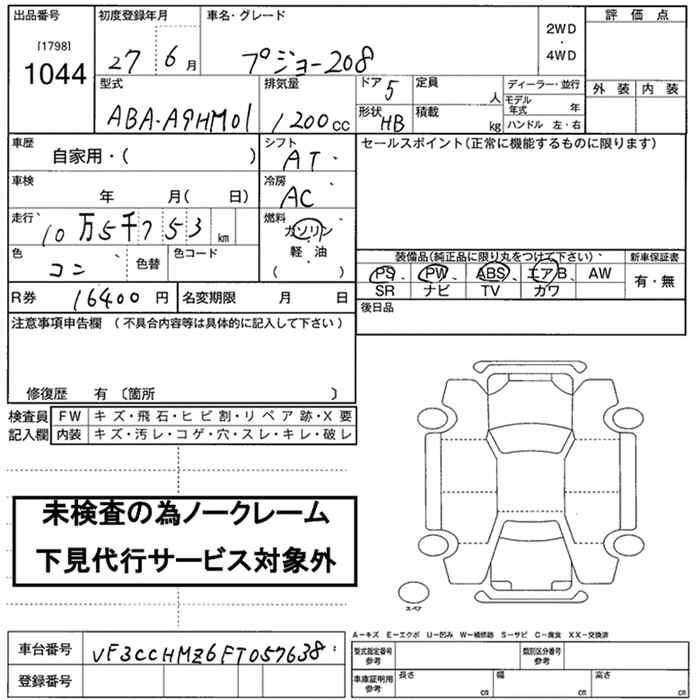 出品番号 初度登録年月 車名・グレード 2WD・4WD 評価点
[1798]
1044 27 6月 プジョー208
型式 排気量 ドア 5 定員 人 ディーラー・並行 外装 内装
ABA-A9HM01 1200cc 形状 HB 積載 kg モデル年式 年
ハンドル 左・右
車歴 自家用・( ) シフト AT セールスポイント(正常に機能するものに限ります)
車検 年 月( 日) 冷房 AC
走行 10万5千753km 燃料 ガソリン
軽・油
( )
色 コン 色替 色コード 装備品(純正品に限り丸をつけて下さい) 新車保証書
PS PW ABS エアB AW 有・無
SR ナビ TV カワ
R券 16400円 名変期限 月 日 後日品
注意事項申告欄 (不具合内容等は具体的に記入して下さい)
修復歴 有 〔箇所 〕
検査員 FW キズ・飛石・ヒビ割・リペア跡・X要
記入欄 内装 キズ・汚レ・コゲ・穴・スレ・キレ・破レ
未検査の為ノークレーム
下見代行サービス対象外
スペア
A-キズ E-エクボ U-凹み W-補修跡 S-サビ C-腐食 XX-交換済
車台番号 VF3CCHMZ6FT057638 型式指定番号 参考 類別区分番号 参考
登録番号 車庫証明用 参考 長さ cm 幅 cm 高さ cm